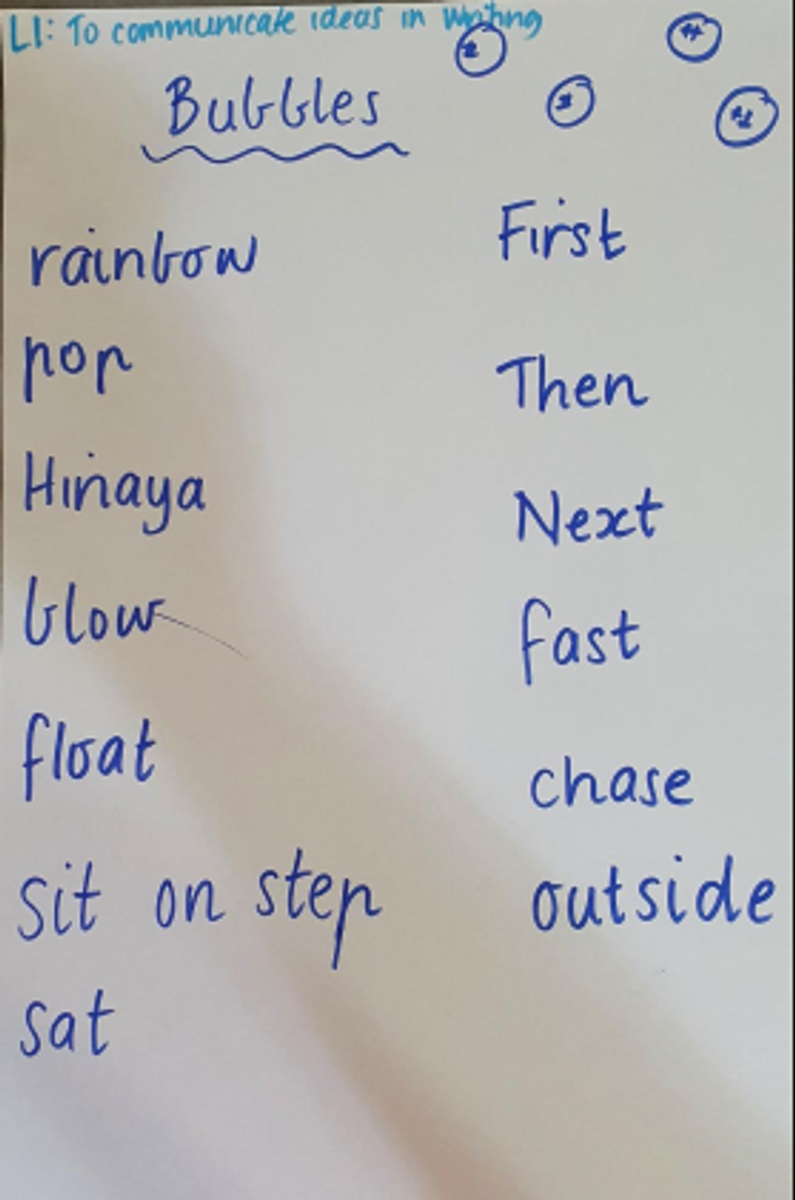 LI: To communicate ideas in writing
Bubbles
rainbow
pop
Hinaya
blow
float
sit on step
sat
First
Then
Next
fast
chase
outside